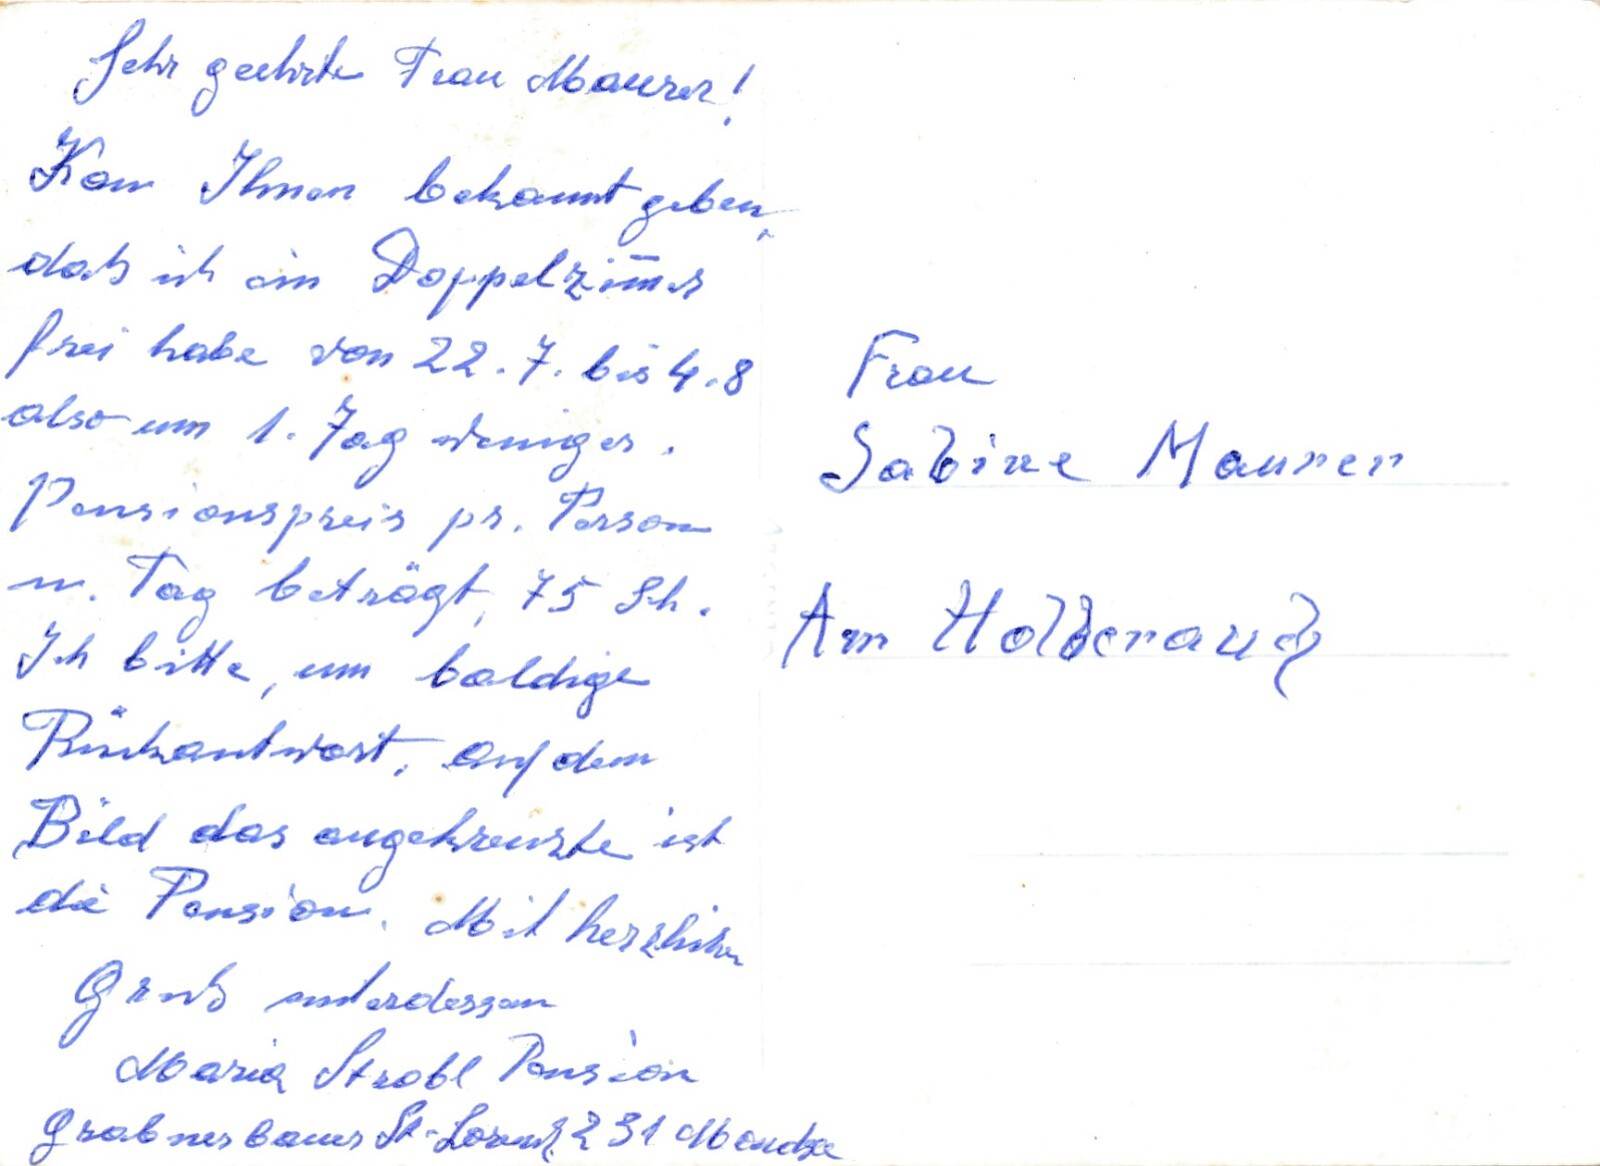 Sehr geehrte Frau Maurer!
Kan Ihnen bekannt geben,
daß ich ein Doppelzim̄er
frei habe von 22.7. bis 4.8
also um 1. Tag weniger.
Pensionspreis pr. Person
u. Tag beträgt, 75 Sch.
Ich bitte, um baldige
Rückantwort, auf dem
Bild das angekreuzte ist
die Pension. Mit herzlichen
Gruß unterdessen
Maria Strobl Pension
Grabnerbauer St. Lorenz 231 Mondsee
Frau
Sabine Maurer
Am